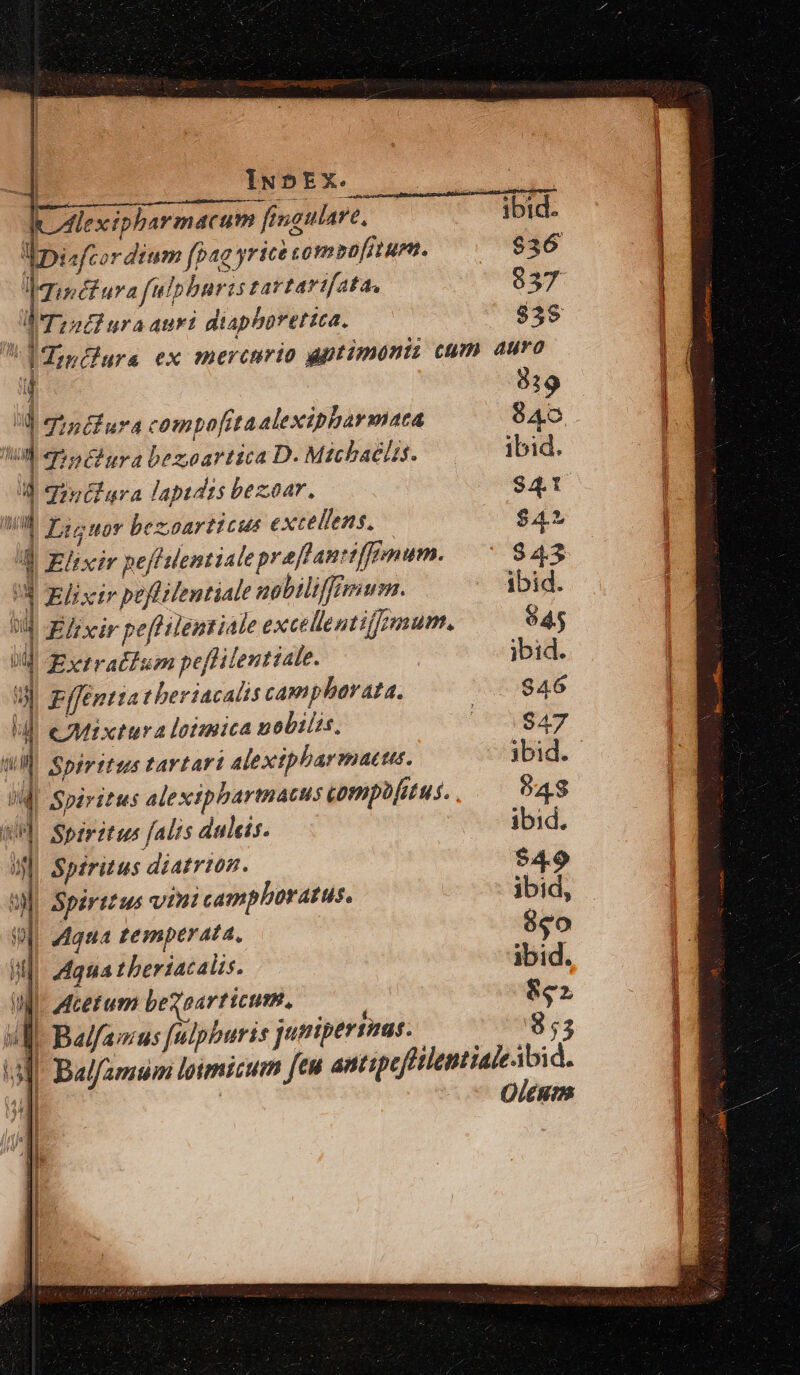 INDEX.
Alexipharmacum ſingulare, ibid.
Diaſcordium ſpagyricè compoſitum. 836
Tinctura ſulphuris tartariſata, 837
Tinctura auri diaphoretica. 838
Tinctura ex mercurio antimonii cum auro
839
Tinctura compoſita alexipharmaca 840
Tinctura bezoartica D. Michaëlis. ibid.
Tinctura lapidis bezoar. 841
Liquor bezoarticus excellens. 842
Elixir peſtilentiale præſtantiſſimum. 843
Elixir peſtilentiale nobiliſſimum. ibid.
Elixir peſtilentiale excellentiſſimum. 845
Extractum peſtilentiale. ibid.
Eſſentia theriacalis camphorata. 846
Mixtura loimica nobilis. 847
Spiritus tartari alexipharmacus. ibid.
Spiritus alexipharmacus compoſitus. 848
Spiritus ſalis dulcis. ibid.
Spiritus diatrion. 849
Spiritus vini camphoratus. ibid,
Aqua temperata, 850
Aqua theriacalis. ibid.
Acetum bezoarticum, 852
Balſamus ſulphuris juniperinus. 853
Balſamum loimicum ſeu antipeſtilentiale. ibid.
Oleum